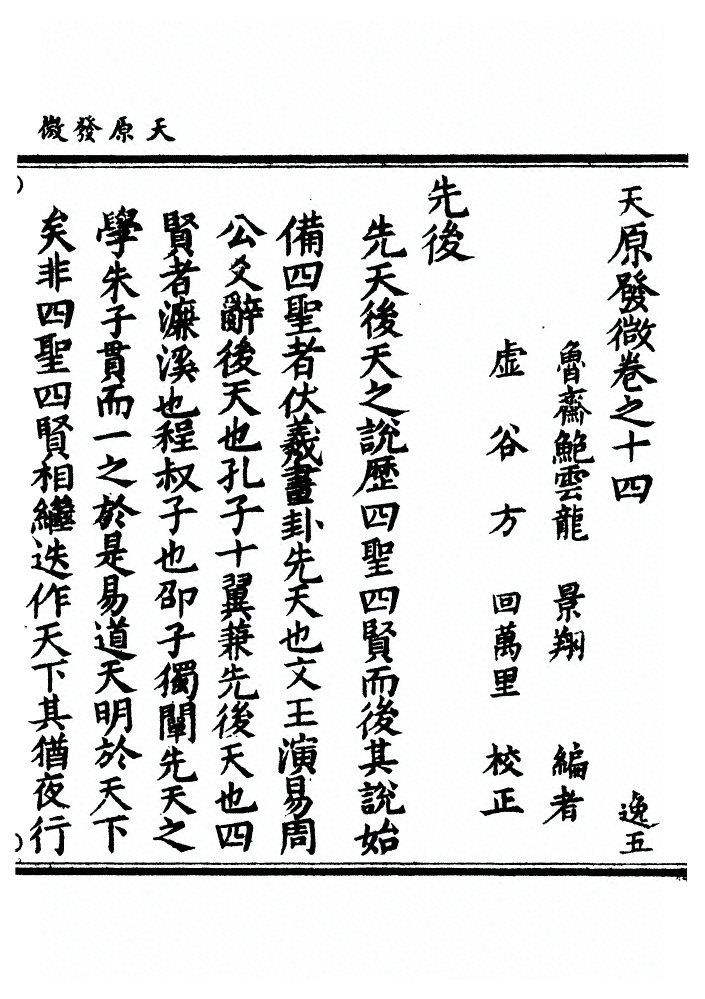 天原發微
天原發微卷之十四 逸五
魯齋鮑雲龍 景翔 編者
虚谷方 回萬里 校正
先後
先天後天之說歷四聖四賢而後其說始
備四聖者伏羲畫卦先天也文王演易周
公爻辭後天也孔子十翼兼先後天也四
賢者濂溪也程叔子也邵子獨闡先天之
學朱子貫而一之於是易道天明於天下
矣非四聖四賢相繼迭作天下其猶夜行